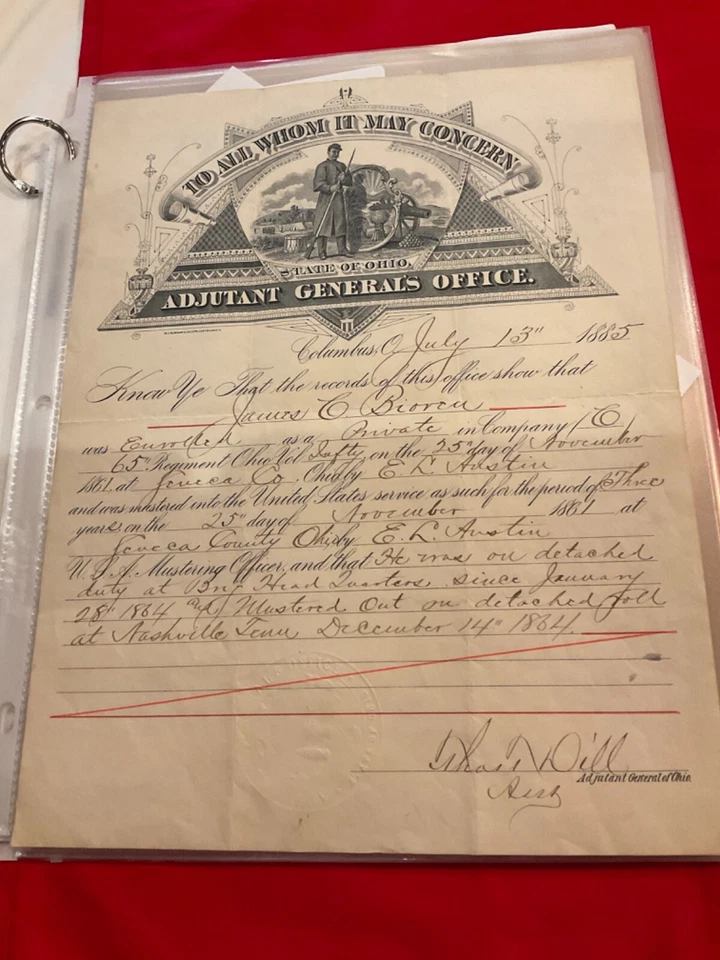 TO ALL WHOM IT MAY CONCERN
STATE OF OHIO,
ADJUTANT GENERAL'S OFFICE.
Columbus, O. July 13" 1885
Know Ye That the records of this office show that
James C
was Enrolled as a Private in Company (C)
65" Regiment Ohio Vol Infty, on the 25" day of November
1861, at Seneca Co, Ohio by E L Austin
and was mustered into the United States service as such for the period of Three
years on the 25" day of November 1861 at
Seneca County Ohio by E. L. Austin
U.S.A. Mustering Officer, and that He was on detached
duty at Brig Head Quarters since January
28" 1864 and Mustered Out on detached roll
at Nashville Tenn December 14" 1864.
Dill
Adjutant General of Ohio.